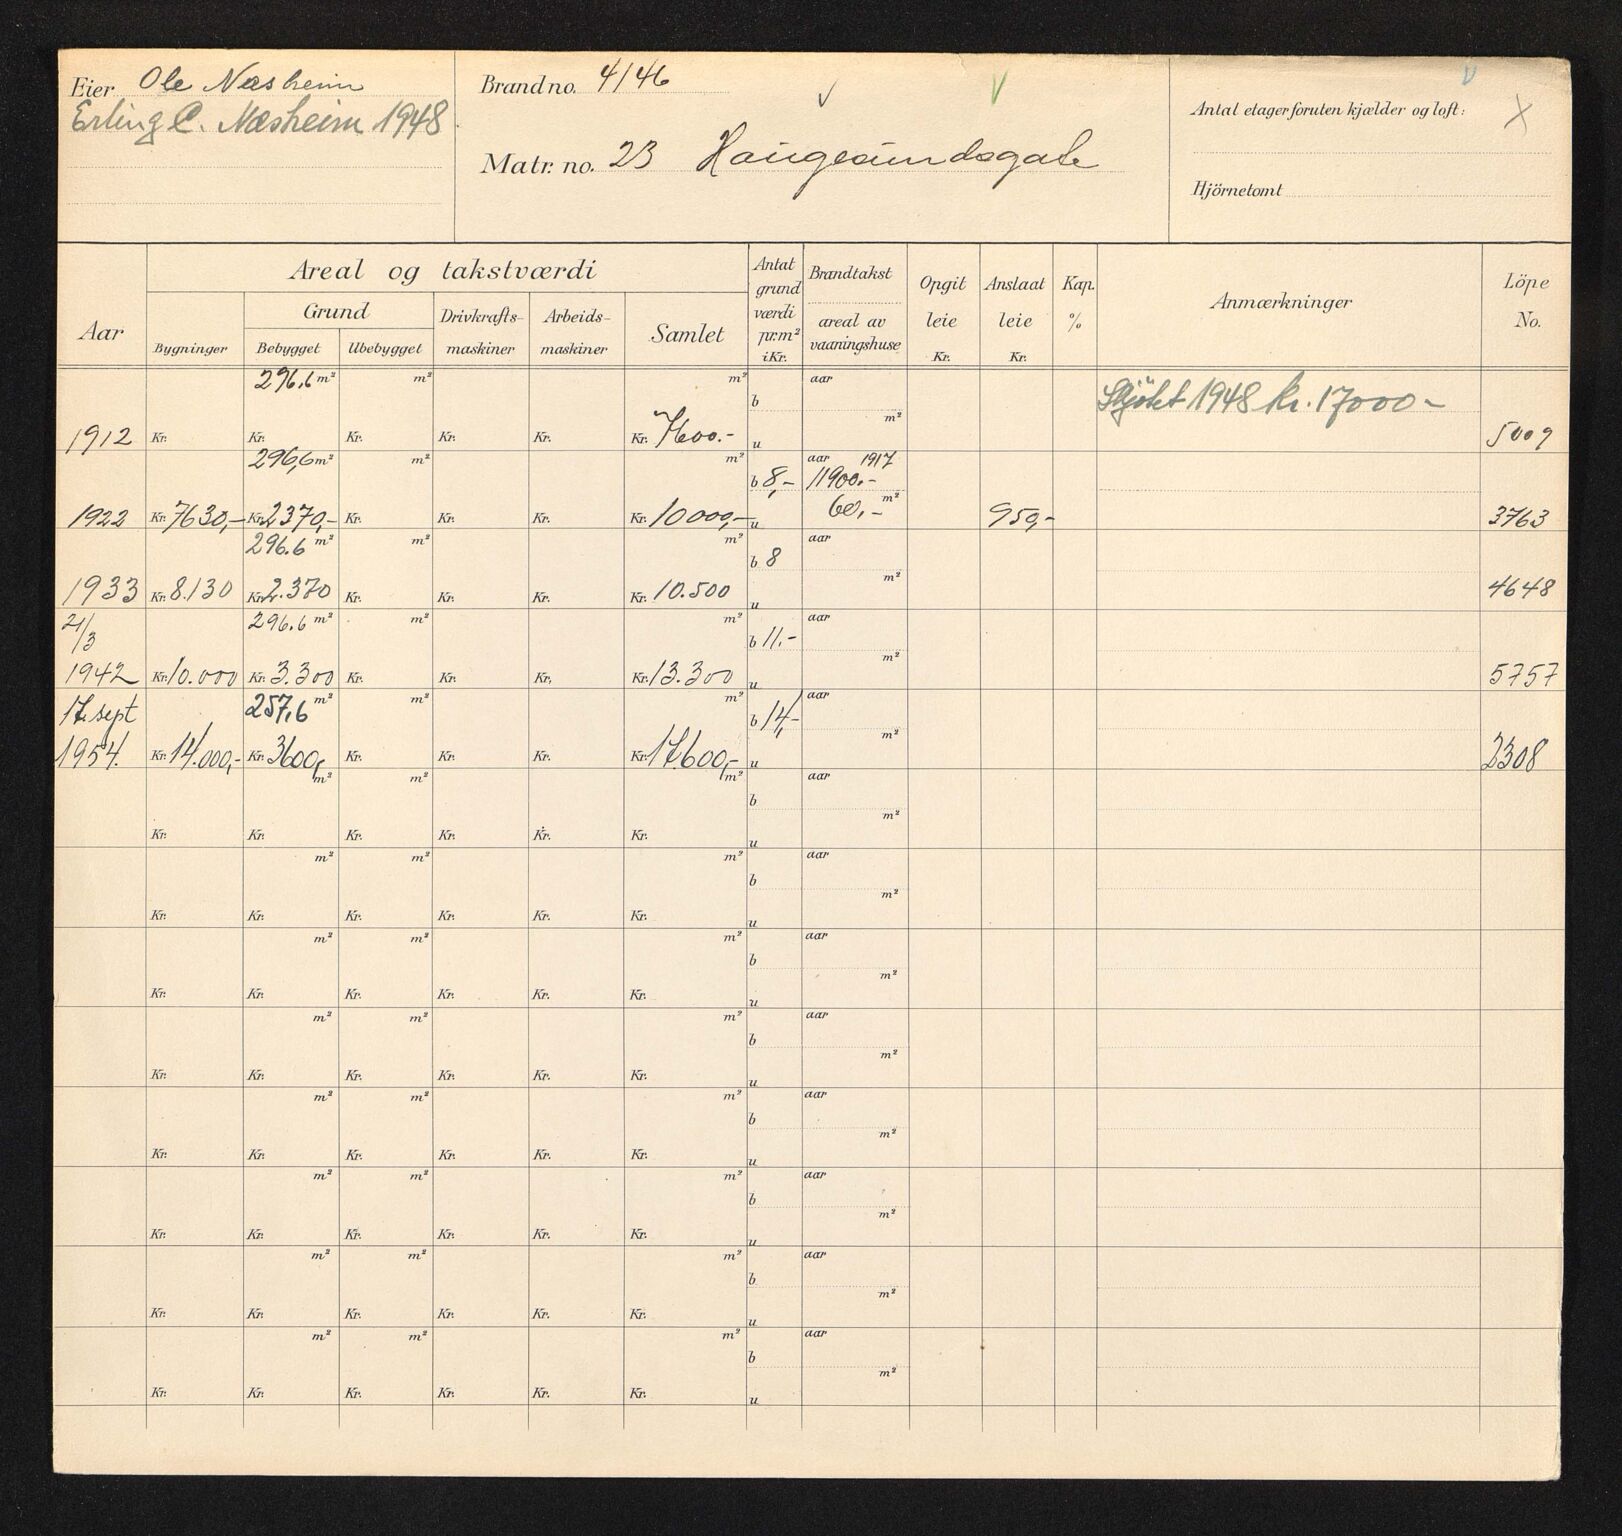 Eier Ole Næsheim
Erling C. Næsheim 1948
Brand no. 4146
Matr. no. 23 Haugesundsgate
Antal etager foruten kjælder og loft:
X
Hjörnetomt
Aar
Areal og takstværdi
Grund
Bygninger
Bebygget
Ubebygget
Drivkrafts-
maskiner
Arbeids-
maskiner
Samlet
Antat
grund
værdi
pr.m²
i Kr.
Brandtakst
areal av
vaaningshuse
Opgit
leie
Kr.
Anslaat
leie
Kr.
Kap.
%
Anmærkninger
Löpe
No.
296,6 m² m² m² aar
b
m²
Skjötet 1948 kr. 17000-
1912 Kr. Kr. Kr. Kr. Kr. Kr. 7600.- u 5009
296,6 m² m² m² aar 1917
b 8,- 11900.-
60,- m²
1922 Kr. 7630,- Kr. 2370,- Kr. Kr. Kr. Kr. 10000,- u 950,- 3763
296.6 m² m² m² aar
b 8
m²
1933 Kr. 8.130 Kr. 2.370 Kr. Kr. Kr. Kr. 10.500 u 4648
21/3 296.6 m² m² m² aar
b 11.-
m²
1942 Kr. 10.000 Kr. 3.300 Kr. Kr. Kr. Kr. 13.300 u 5757
17. sept 257,6 m² m² m² aar
b 14,-
m²
1954. Kr. 14.000,- Kr. 3600,- Kr. Kr. Kr. Kr. 17.600,- u 2308
m² m² m² aar
b
m²
Kr. Kr. Kr. Kr. Kr. Kr. u
m² m² m² aar
b
m²
Kr. Kr. Kr. Kr. Kr. Kr. u
m² m² m² aar
b
m²
Kr. Kr. Kr. Kr. Kr. Kr. u
m² m² m² aar
b
m²
Kr. Kr. Kr. Kr. Kr. Kr. u
m² m² m² aar
b
m²
Kr. Kr. Kr. Kr. Kr. Kr. u
m² m² m² aar
b
m²
Kr. Kr. Kr. Kr. Kr. Kr. u
m² m² m² aar
b
m²
Kr. Kr. Kr. Kr. Kr. Kr. u
m² m² m² aar
b
m²
Kr. Kr. Kr. Kr. Kr. Kr. u